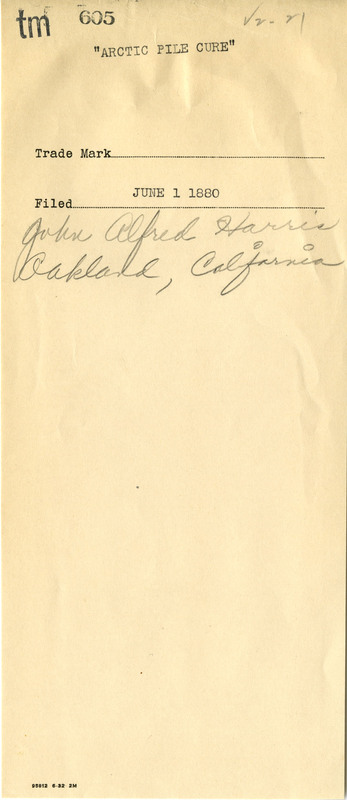 tm 605
"ARCTIC PILE CURE"
Trade Mark
JUNE 1 1880
Filed
John Alfred Harris
Oakland, California
95612 6-32 2M